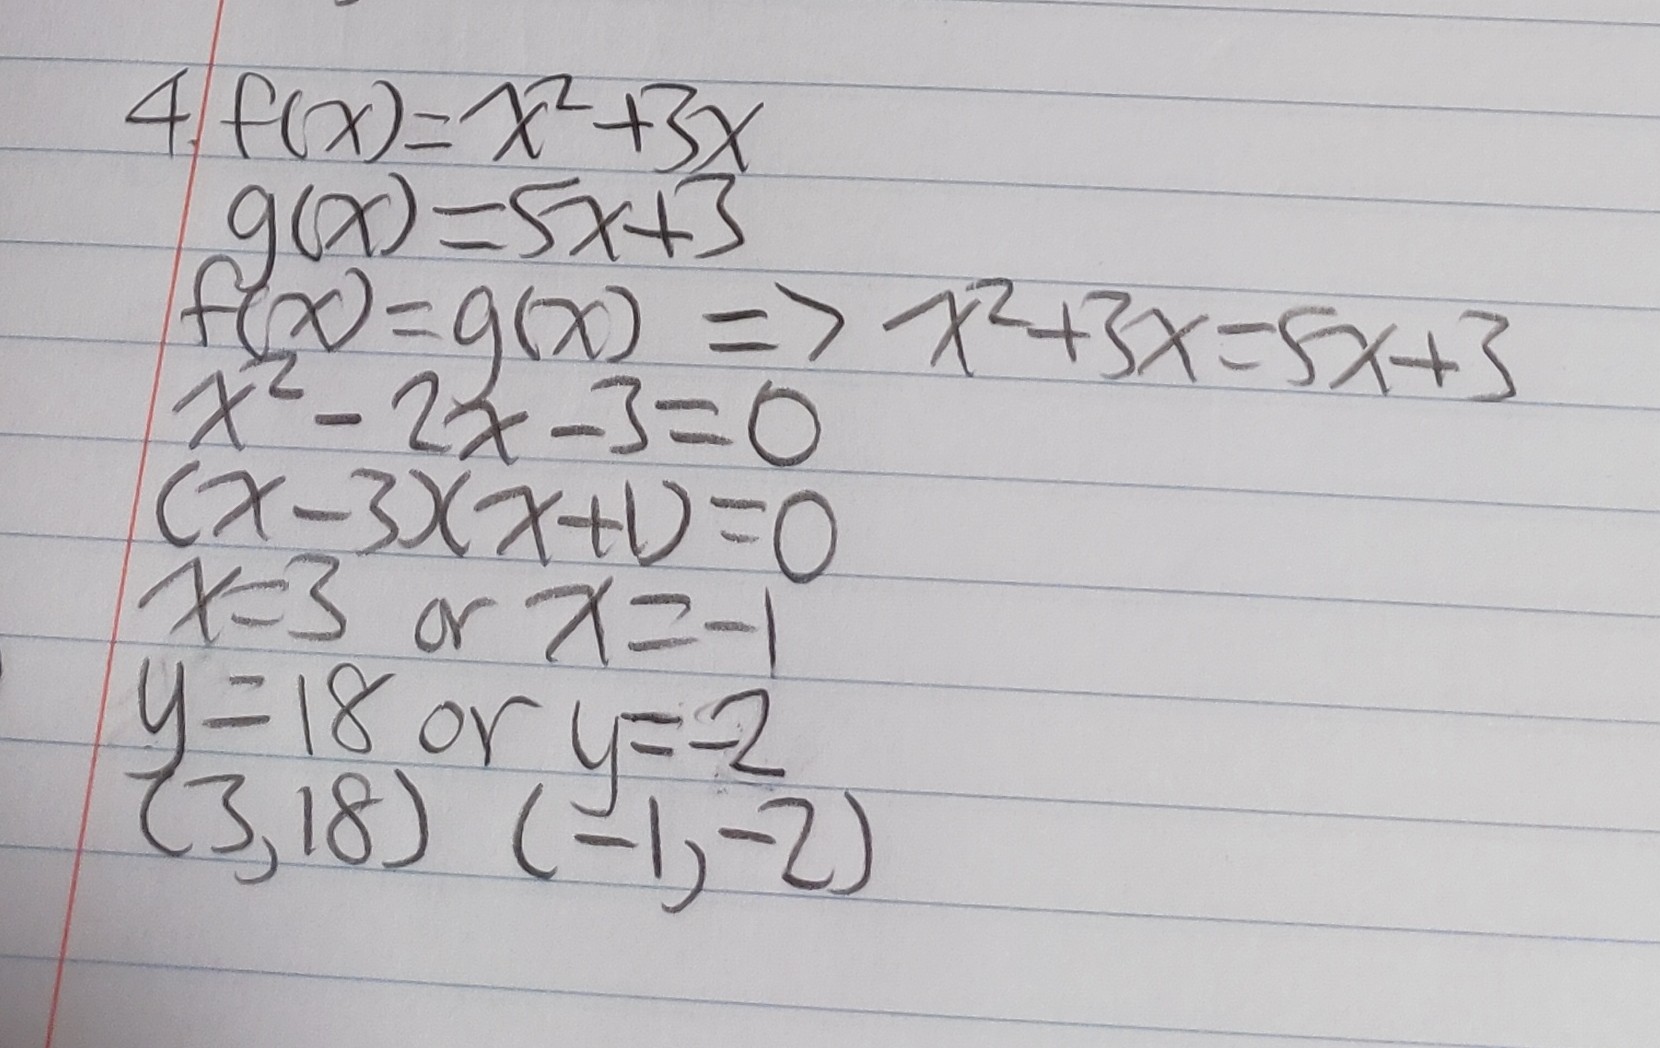 4. f(x)=x²+3x
g(x)=5x+3
f(x)=g(x) => x²+3x=5x+3
x²-2x-3=0
(x-3)(x+1)=0
x=3 or x=-1
y=18 or y=-2
(3,18) (-1,-2)